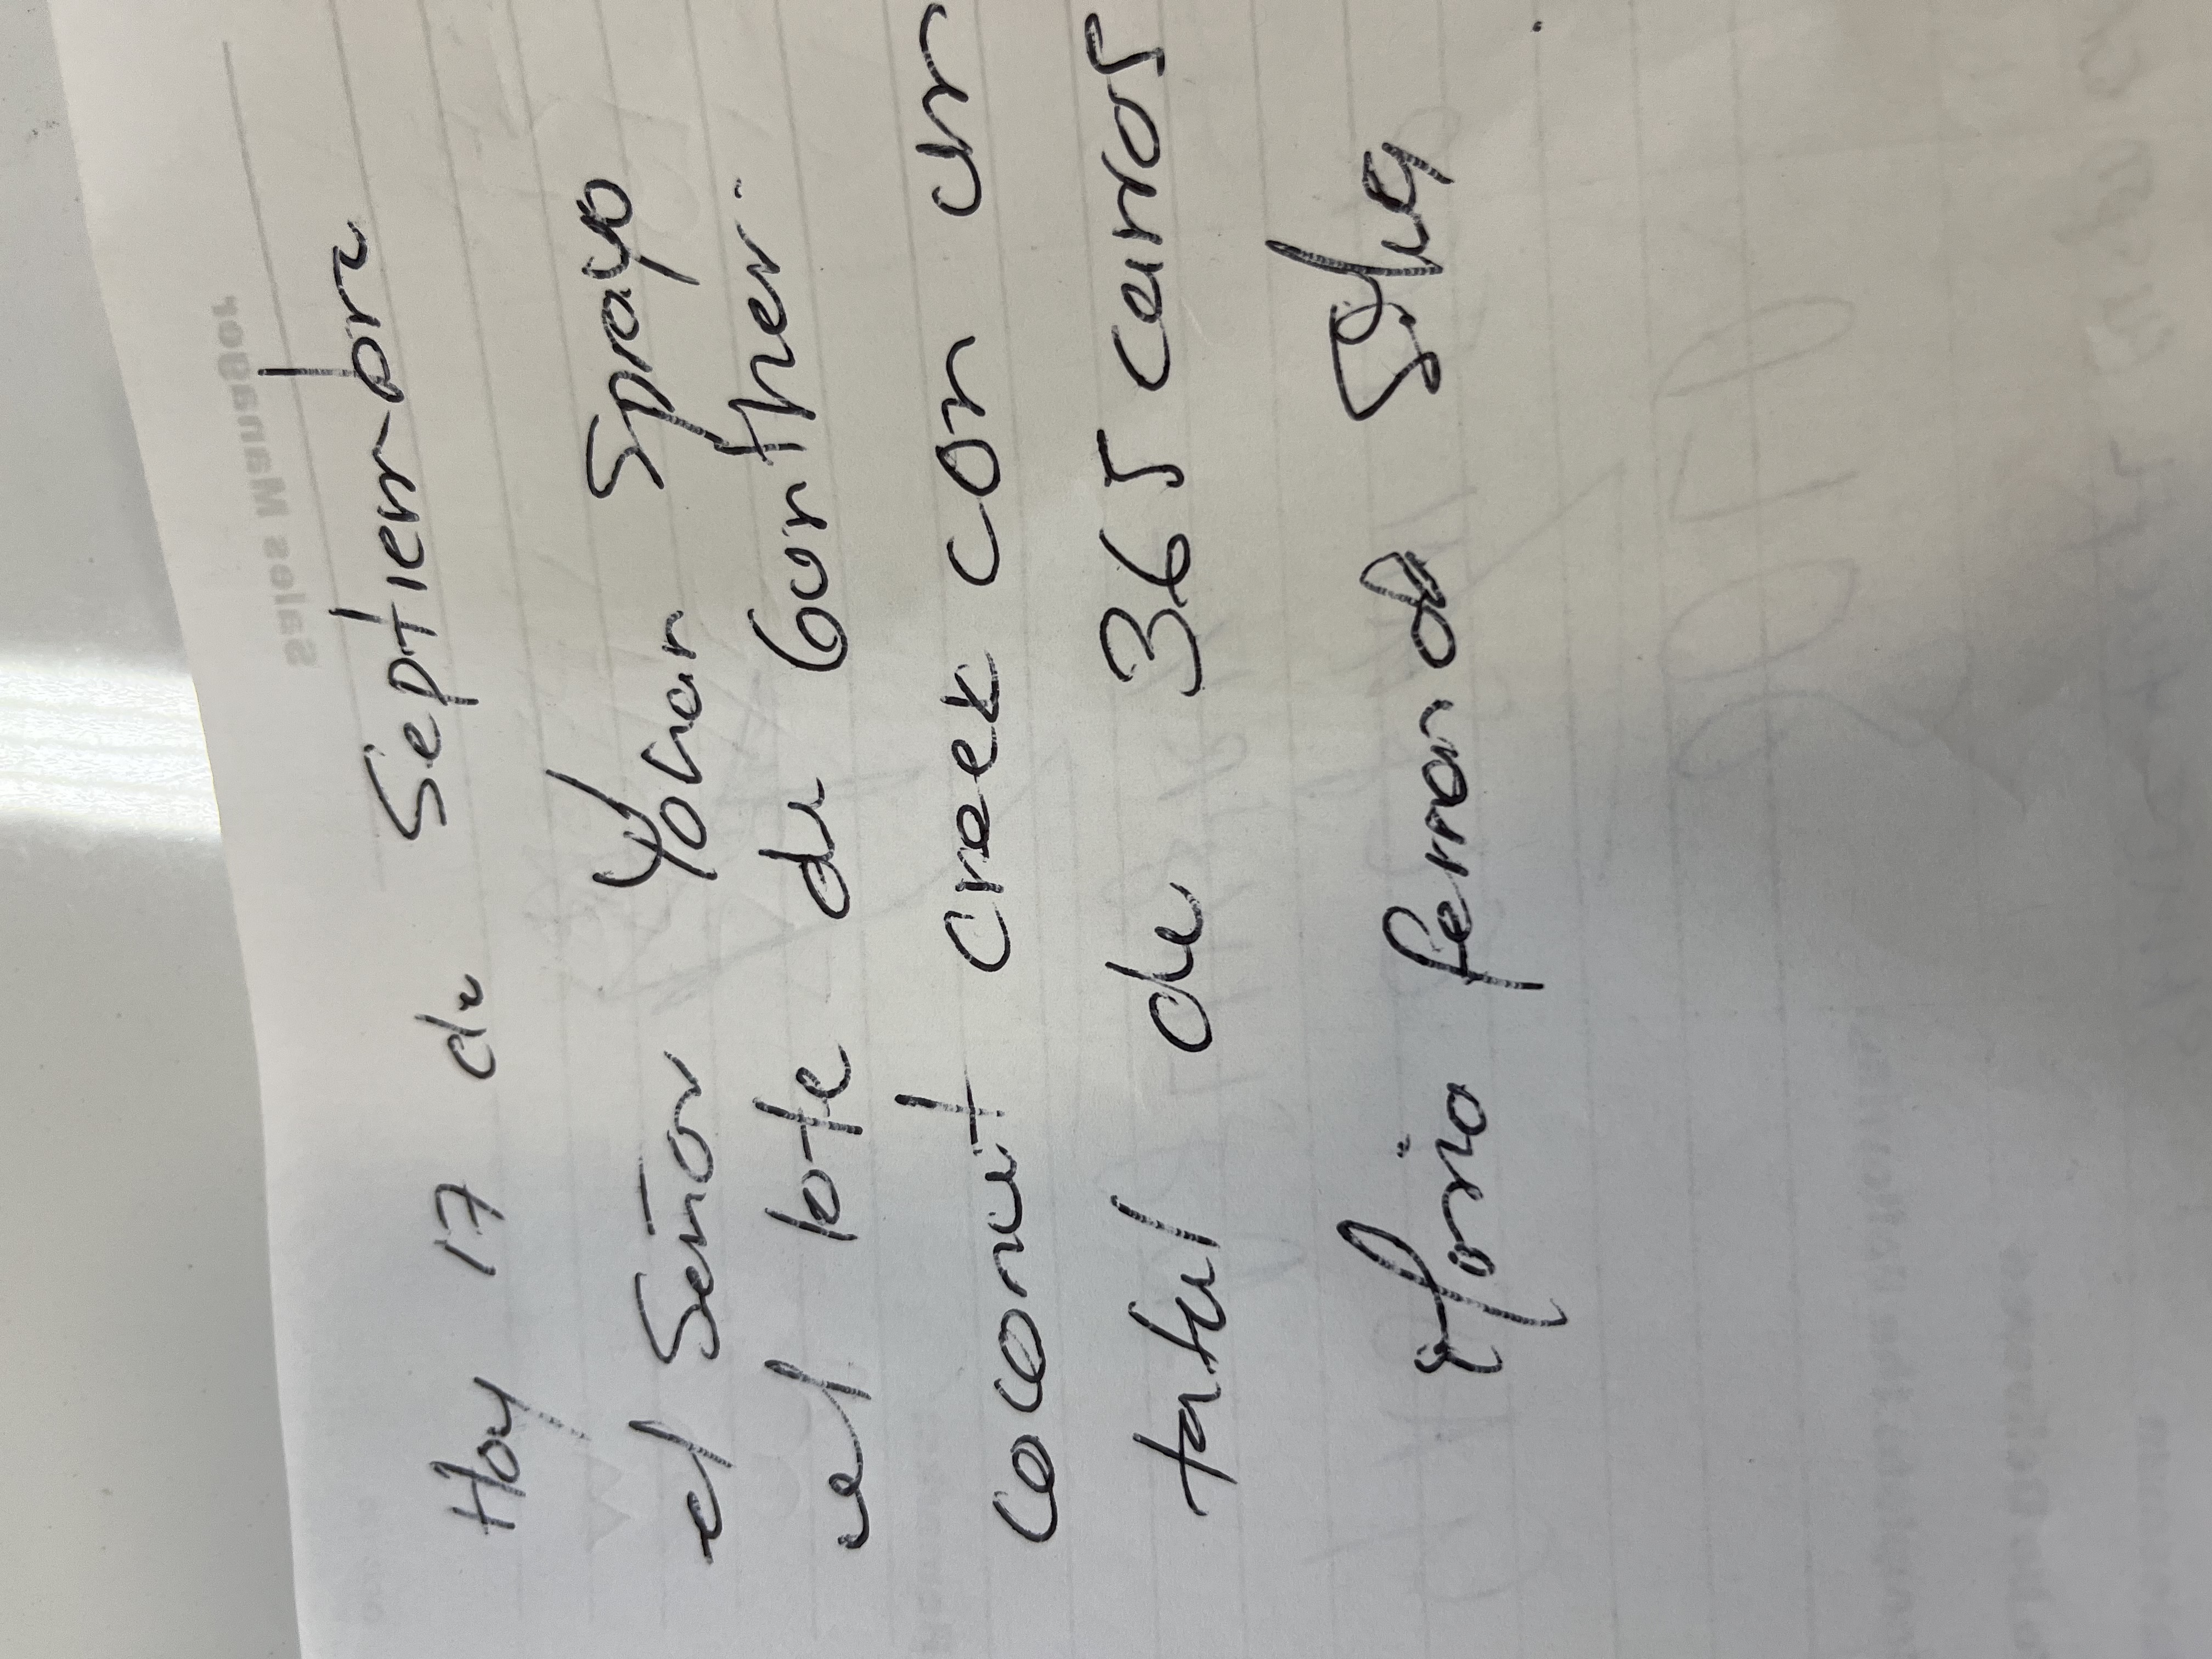 Hoy 17 de Septiembre
el Señor Yohan Sprayo
el lote de Gunther.
coconut creek con un
total de 365 carros
Mario fernando Silva
Sales Manager